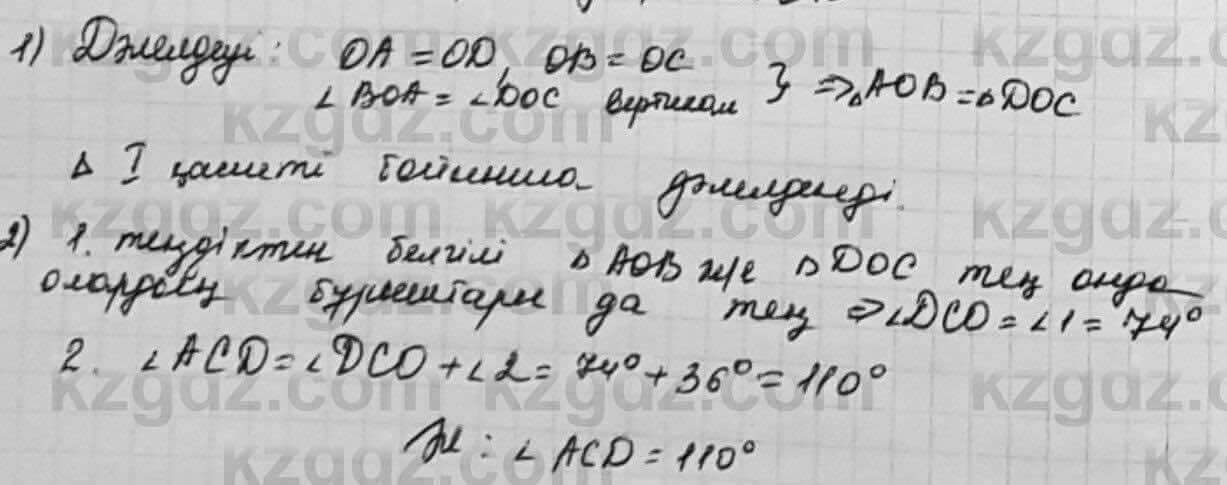 1) Дәлелдеуі: OA = OD, OB = OC
∠BOA = ∠DOC вертикал } => △AOB = △DOC
△ I қасиеті бойынша дәлелденеді.
2) 1. теңдіктен белгілі △AOB же △DOC тең онда
олардың бұрыштары да тең => ∠DCO = ∠1 = 74°
2. ∠ACD = ∠DCO + ∠2 = 74° + 36° = 110°
Ж: ∠ACD = 110°
kzgdz.com